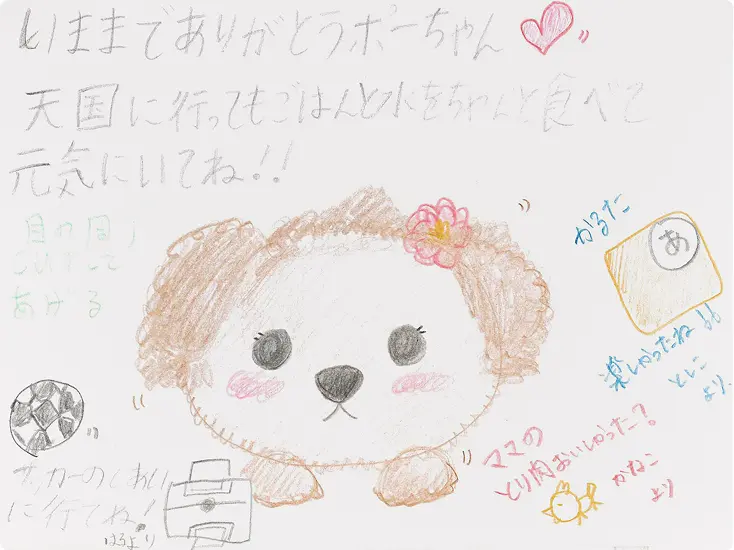 いままでありがとうポーちゃん
天国に行ってもごはんと水をちゃんと食べて
元気にいてね!!
目の周り
あげる
かるた
あ
楽しかったね!!
としこ
より
ママの
とり肉おいしかった?
かねこ
より
サッカーのしあい
に行てね!
はるより